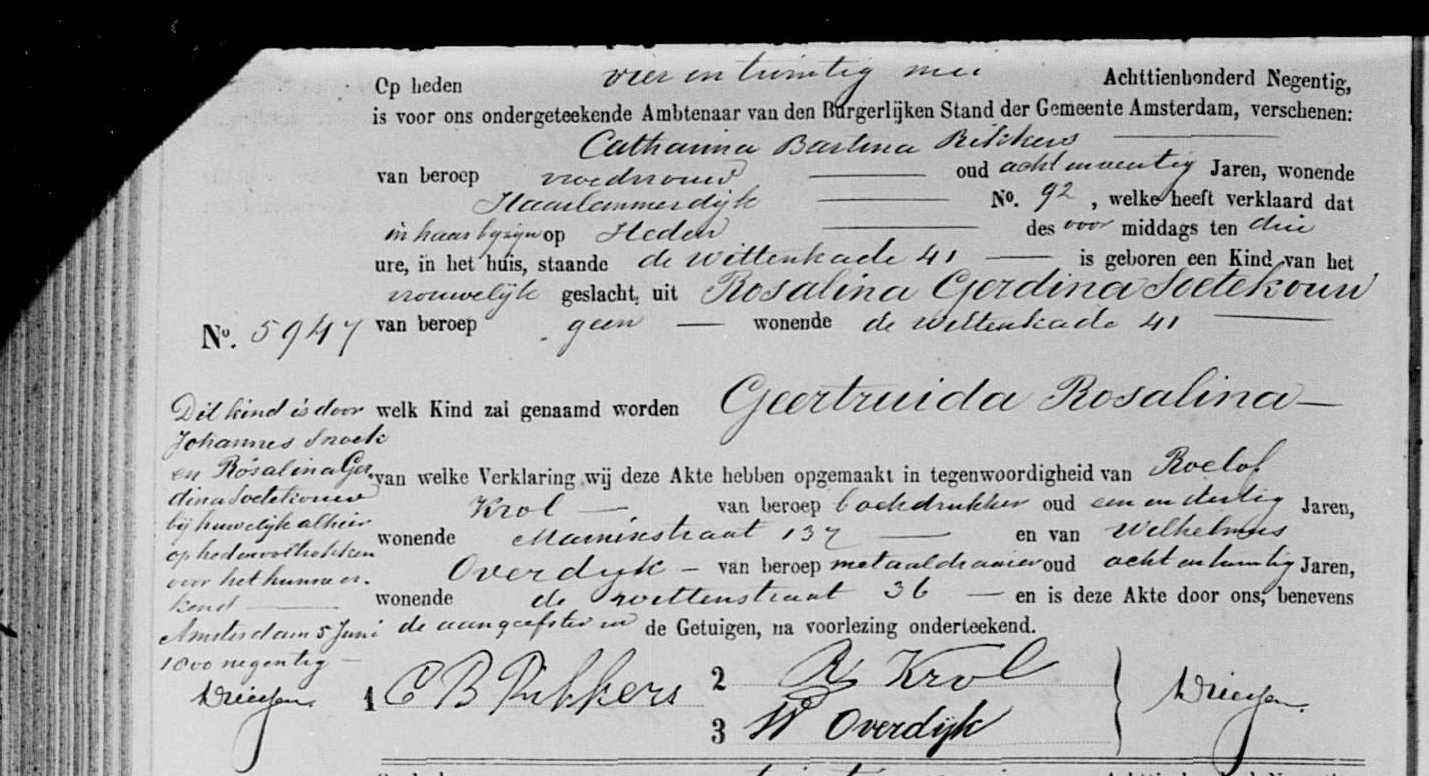 Op heden vier en twintig mei Achttienhonderd Negentig,
is voor ons ondergeteekende Ambtenaar van den Burgerlijken Stand der Gemeente Amsterdam, verschenen:
Catharina Bartina Rikkers
van beroep vroedvrouw oud achtenveertig Jaren, wonende
Haarlemmerdijk No. 92, welke heeft verklaard dat
in haar bijzijn op Heden des voor middags ten drie
ure, in het huis, staande de Wittenkade 41 is geboren een Kind van het
vrouwelijk geslacht, uit Rosalina Gerdina Soetekouw
No. 5947 van beroep geen wonende de Wittenkade 41
welk Kind zal genaamd worden Geertruida Rosalina
van welke Verklaring wij deze Akte hebben opgemaakt in tegenwoordigheid van Roelof
Krol van beroep boekdrukker oud een en dertig Jaren,
wonende Marnixstraat 137 en van Wilhelmus
Overdijk van beroep metaaldraaier oud acht en twintig Jaren,
wonende de Wittenstraat 36 en is deze Akte door ons, benevens
de aangeefster en de Getuigen, na voorlezing onderteekend.
1 C B Rikkers
2 R Krol
3 W Overdijk
Dit kind is door
Johannes Snoek
en Rosalina Ger
dina Soetekouw
bij huwelijk alhier
op heden voltrokken
voor het hunne er-
kend
Amsterdam 5 Juni
1800 negentig